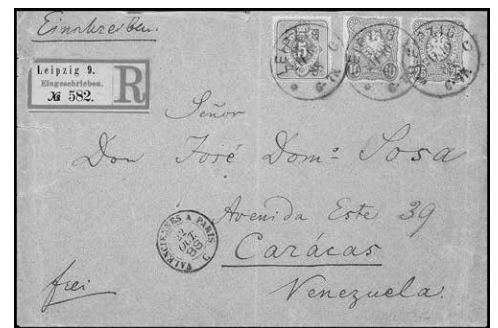 Einschreiben.
Leipzig 9.
Eingeschrieben.
№ 582.
R
Señor
Don José Domº Sosa
Avenida Este 39
Carácas
Venezuela.
frei
VALENCIENNES A PARIS
LEIPZIG